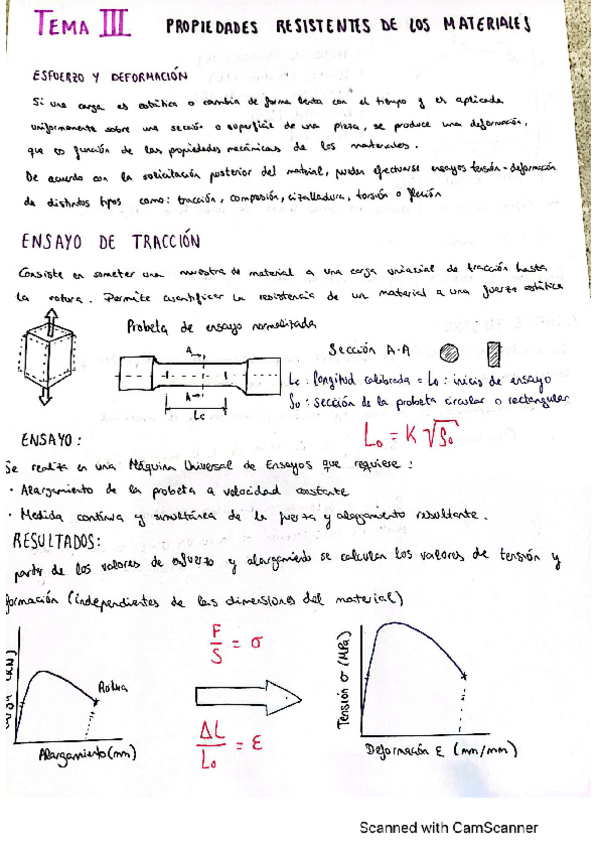 TEMA III PROPIEDADES RESISTENTES DE LOS MATERIALES
ESFUERZO Y DEFORMACIÓN
Si una carga es estática o cambia de forma lenta con el tiempo y es aplicada
uniformemente sobre una sección o superficie de una pieza, se produce una deformación,
que es función de las propiedades mecánicas de los materiales.
De acuerdo con la solicitación posterior del material, pueden efectuarse ensayos tensión-deformación
de distintos tipos como: tracción, compresión, cizalladura, torsión o flexión
ENSAYO DE TRACCIÓN
Consiste en someter una muestra de material a una carga uniaxial de tracción hasta
la rotura. Permite cuantificar la resistencia de un material a una fuerza estática
Probeta de ensayo normalizada
Sección A-A
A
A
Lc
Lc: longitud calibrada = Lo: inicio de ensayo
So: sección de la probeta circular o rectangular
Lo = K √So
ENSAYO:
Se realiza en una Máquina Universal de Ensayos que requiere:
· Alargamiento de la probeta a velocidad constante
· Medida continua y simultánea de la fuerza y alargamiento resultante.
RESULTADOS:
partir de los valores de esfuerzo y alargamiento se calculan los valores de tensión y
formación (independientes de las dimensiones del material)
F/S = σ
(KN)
Rotura
Alargamiento (mm)
ΔL/Lo = ε
Tensión σ (MPa)
Deformación ε (mm/mm)
Scanned with CamScanner